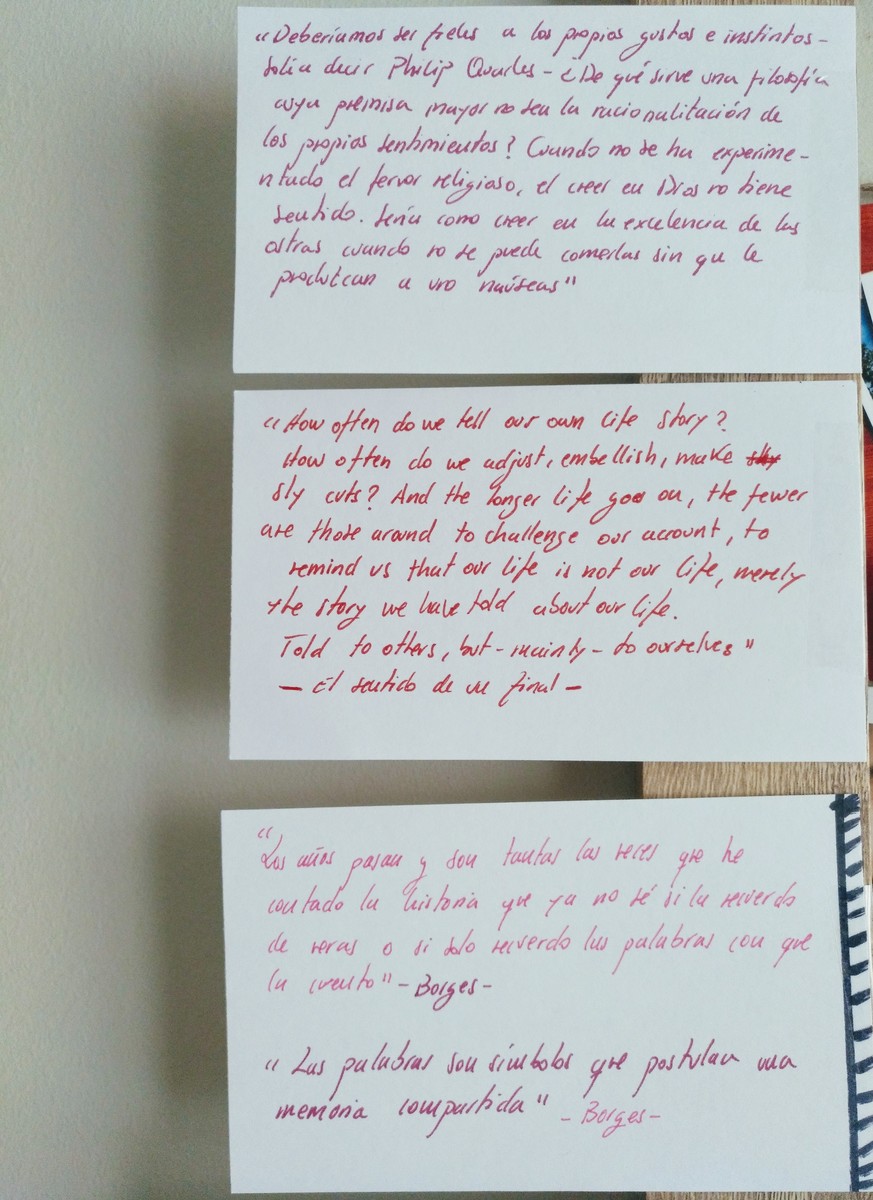 "Deberíamos ser fieles a los propios gustos e instintos -
solía decir Philip Quarles - ¿De qué sirve una filosofía
cuya premisa mayor no sea la racionalización de
los propios sentimientos? Cuando no se ha experime-
ntado el fervor religioso, el creer en Dios no tiene
sentido. Sería como creer en la excelencia de las
ostras cuando no se puede comerlas sin que le
produzcan a uno naúseas"
"How often do we tell our own life story?
How often do we adjust, embellish, make sly
sly cuts? And the longer life goes on, the fewer
are those around to challenge our account, to
remind us that our life is not our life, merely
the story we have told about our life.
Told to others, but - mainly - to ourselves"
- El sentido de un final -
"Los años pasan y son tantas las veces que he
contado la historia que ya no sé si la recuerdo
de veras o si solo recuerdo las palabras con que
la cuento" - Borges -
"Las palabras son símbolos que postulan una
memoria compartida" - Borges -